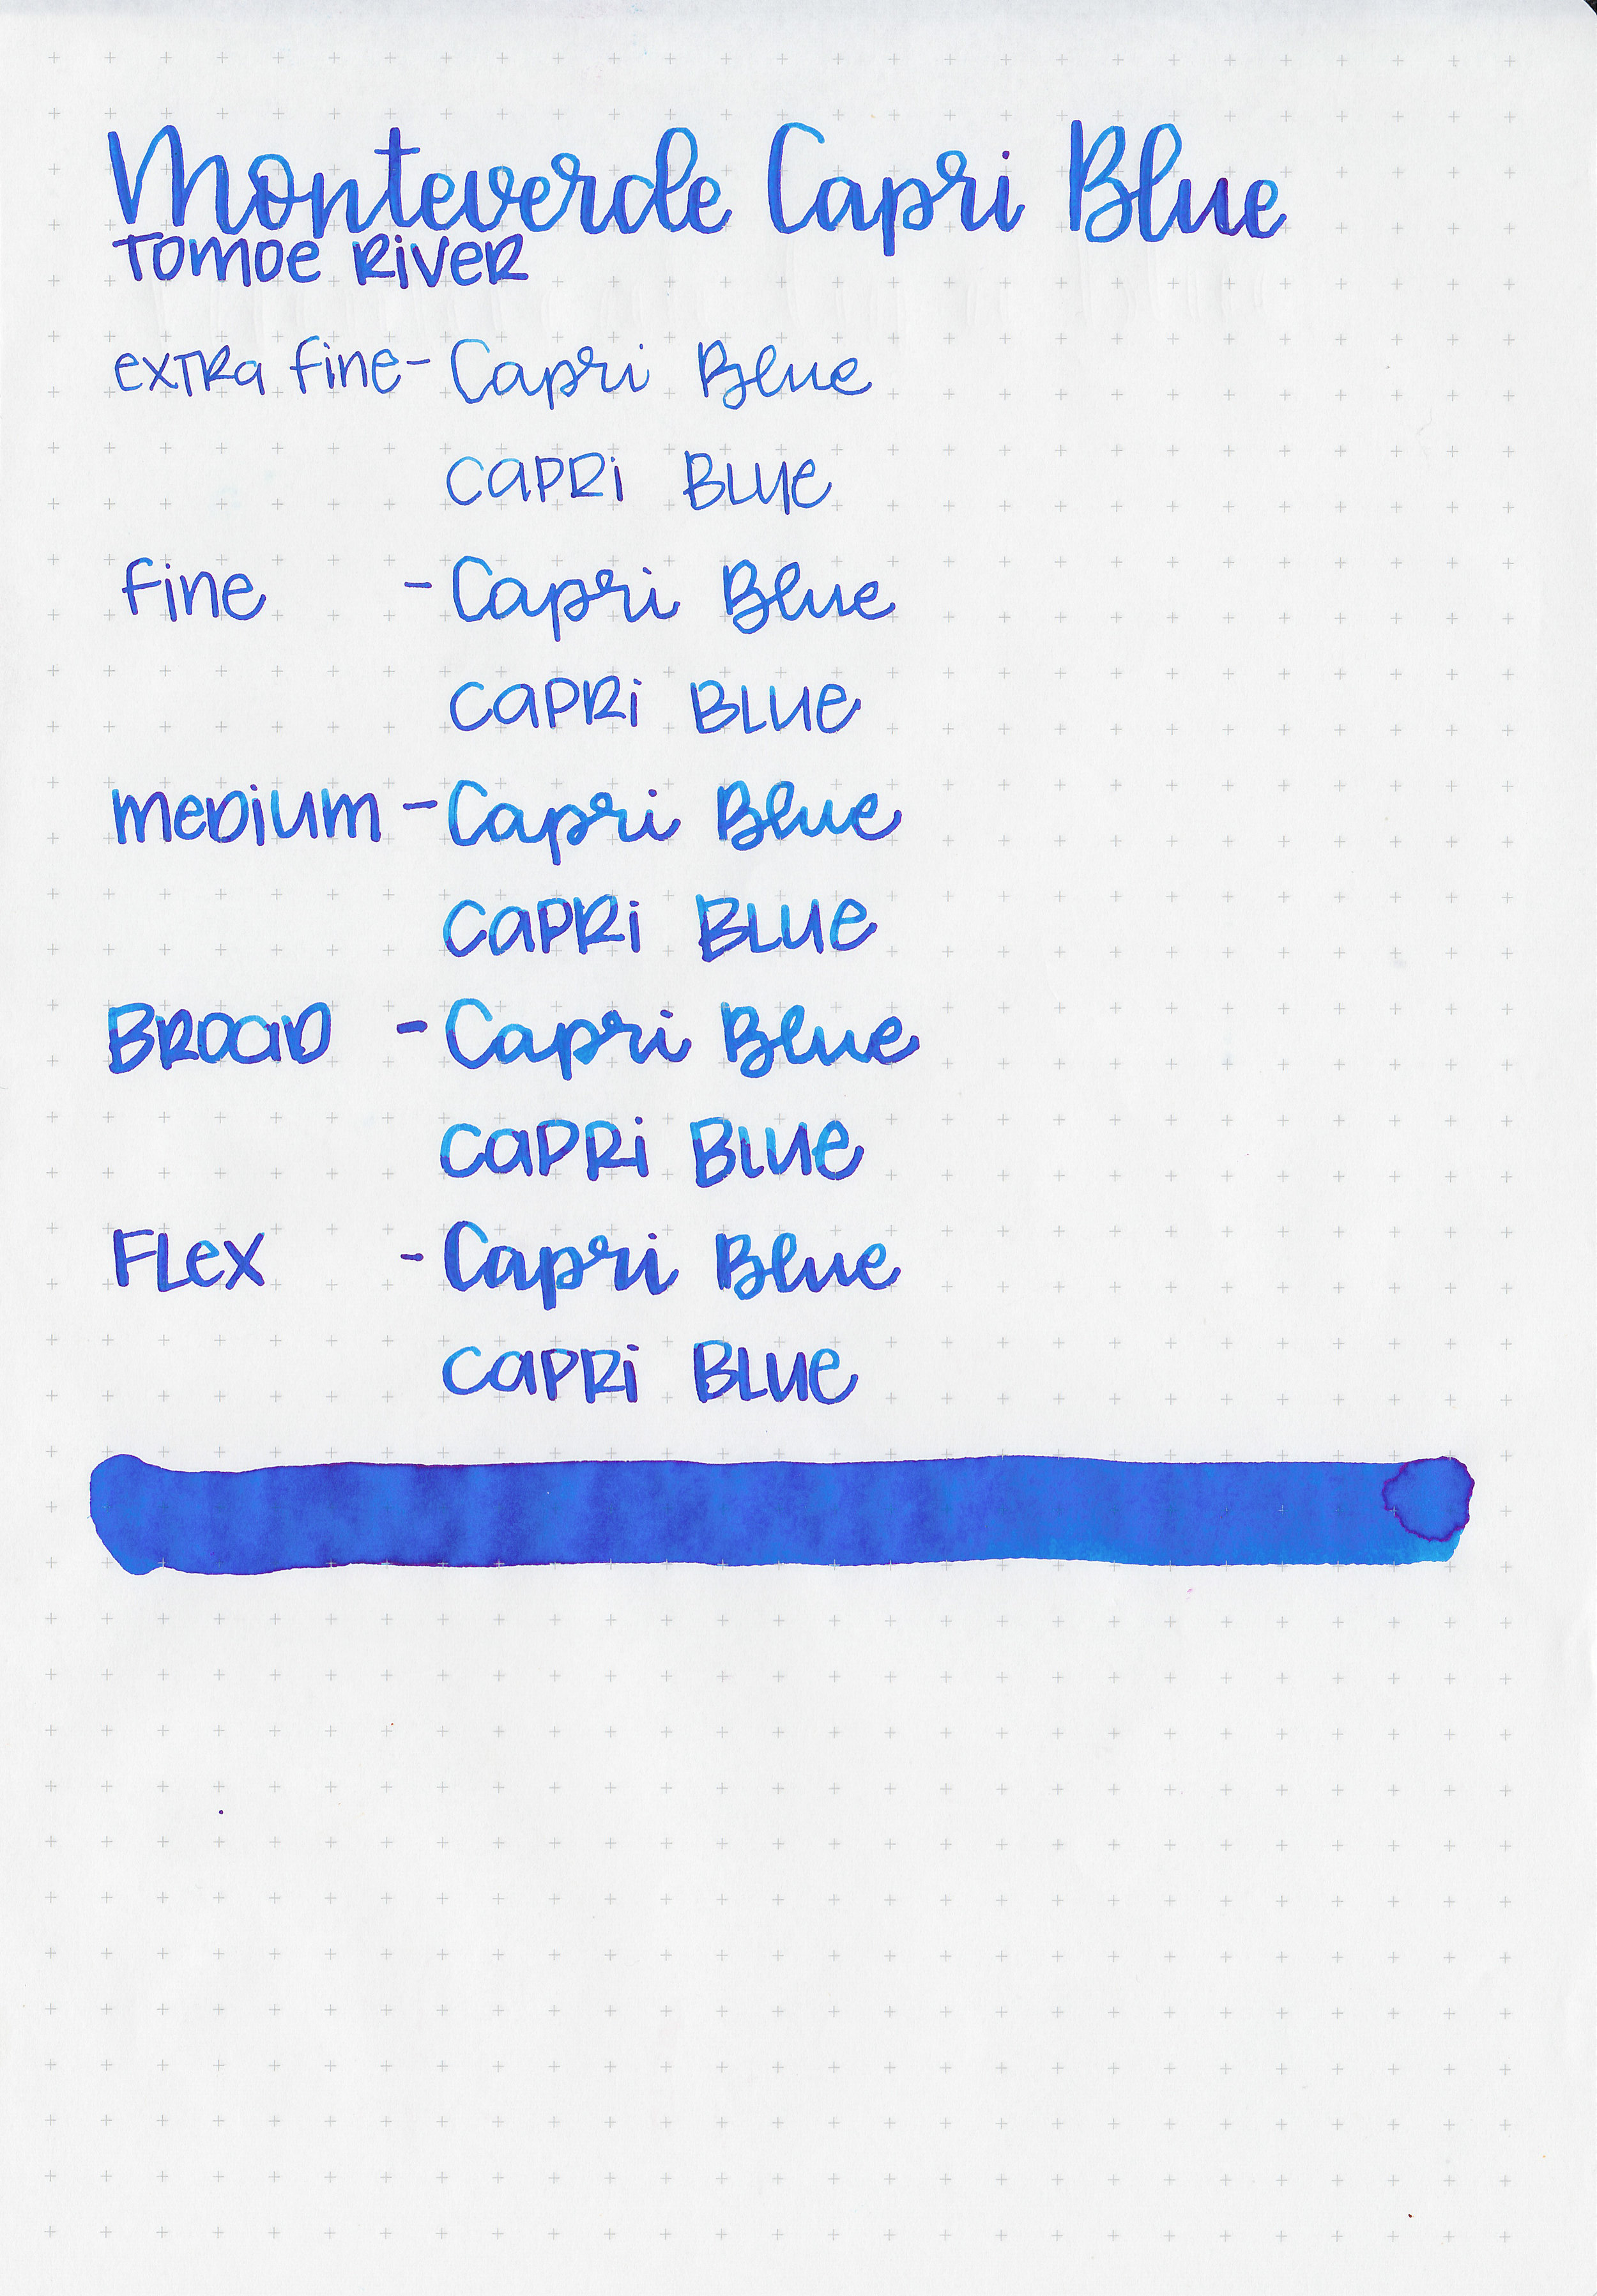 Monteverde Capri Blue
TOMOE RIVER
exTRa fine - Capri Blue
CaPRi BLUe
fine - Capri Blue
CaPRi BLUe
meDium - Capri Blue
CaPRi BLUe
BROaD - Capri Blue
CaPRi BLUe
FLex - Capri Blue
CaPRi BLUe